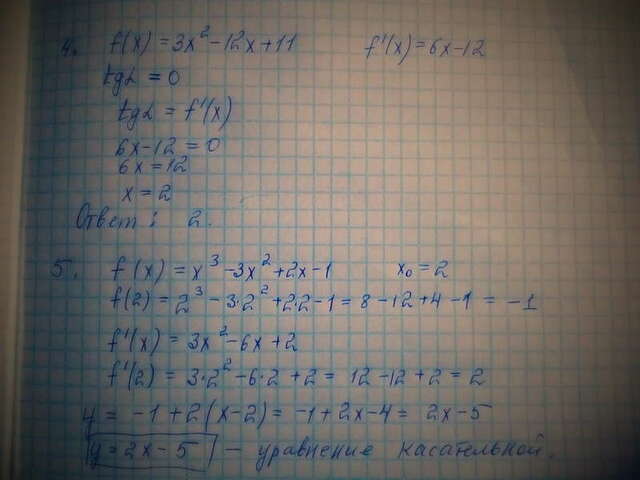 4. f(x) = 3x² - 12x + 11 f'(x) = 6x - 12
tgα = 0
tgα = f'(x)
6x - 12 = 0
6x = 12
x = 2
Ответ: 2.
5. f(x) = x³ - 3x² + 2x - 1 x₀ = 2
f(2) = 2³ - 3·2² + 2·2 - 1 = 8 - 12 + 4 - 1 = -1
f'(x) = 3x² - 6x + 2
f'(2) = 3·2² - 6·2 + 2 = 12 - 12 + 2 = 2
y = -1 + 2(x - 2) = -1 + 2x - 4 = 2x - 5
y = 2x - 5 — уравнение касательной.